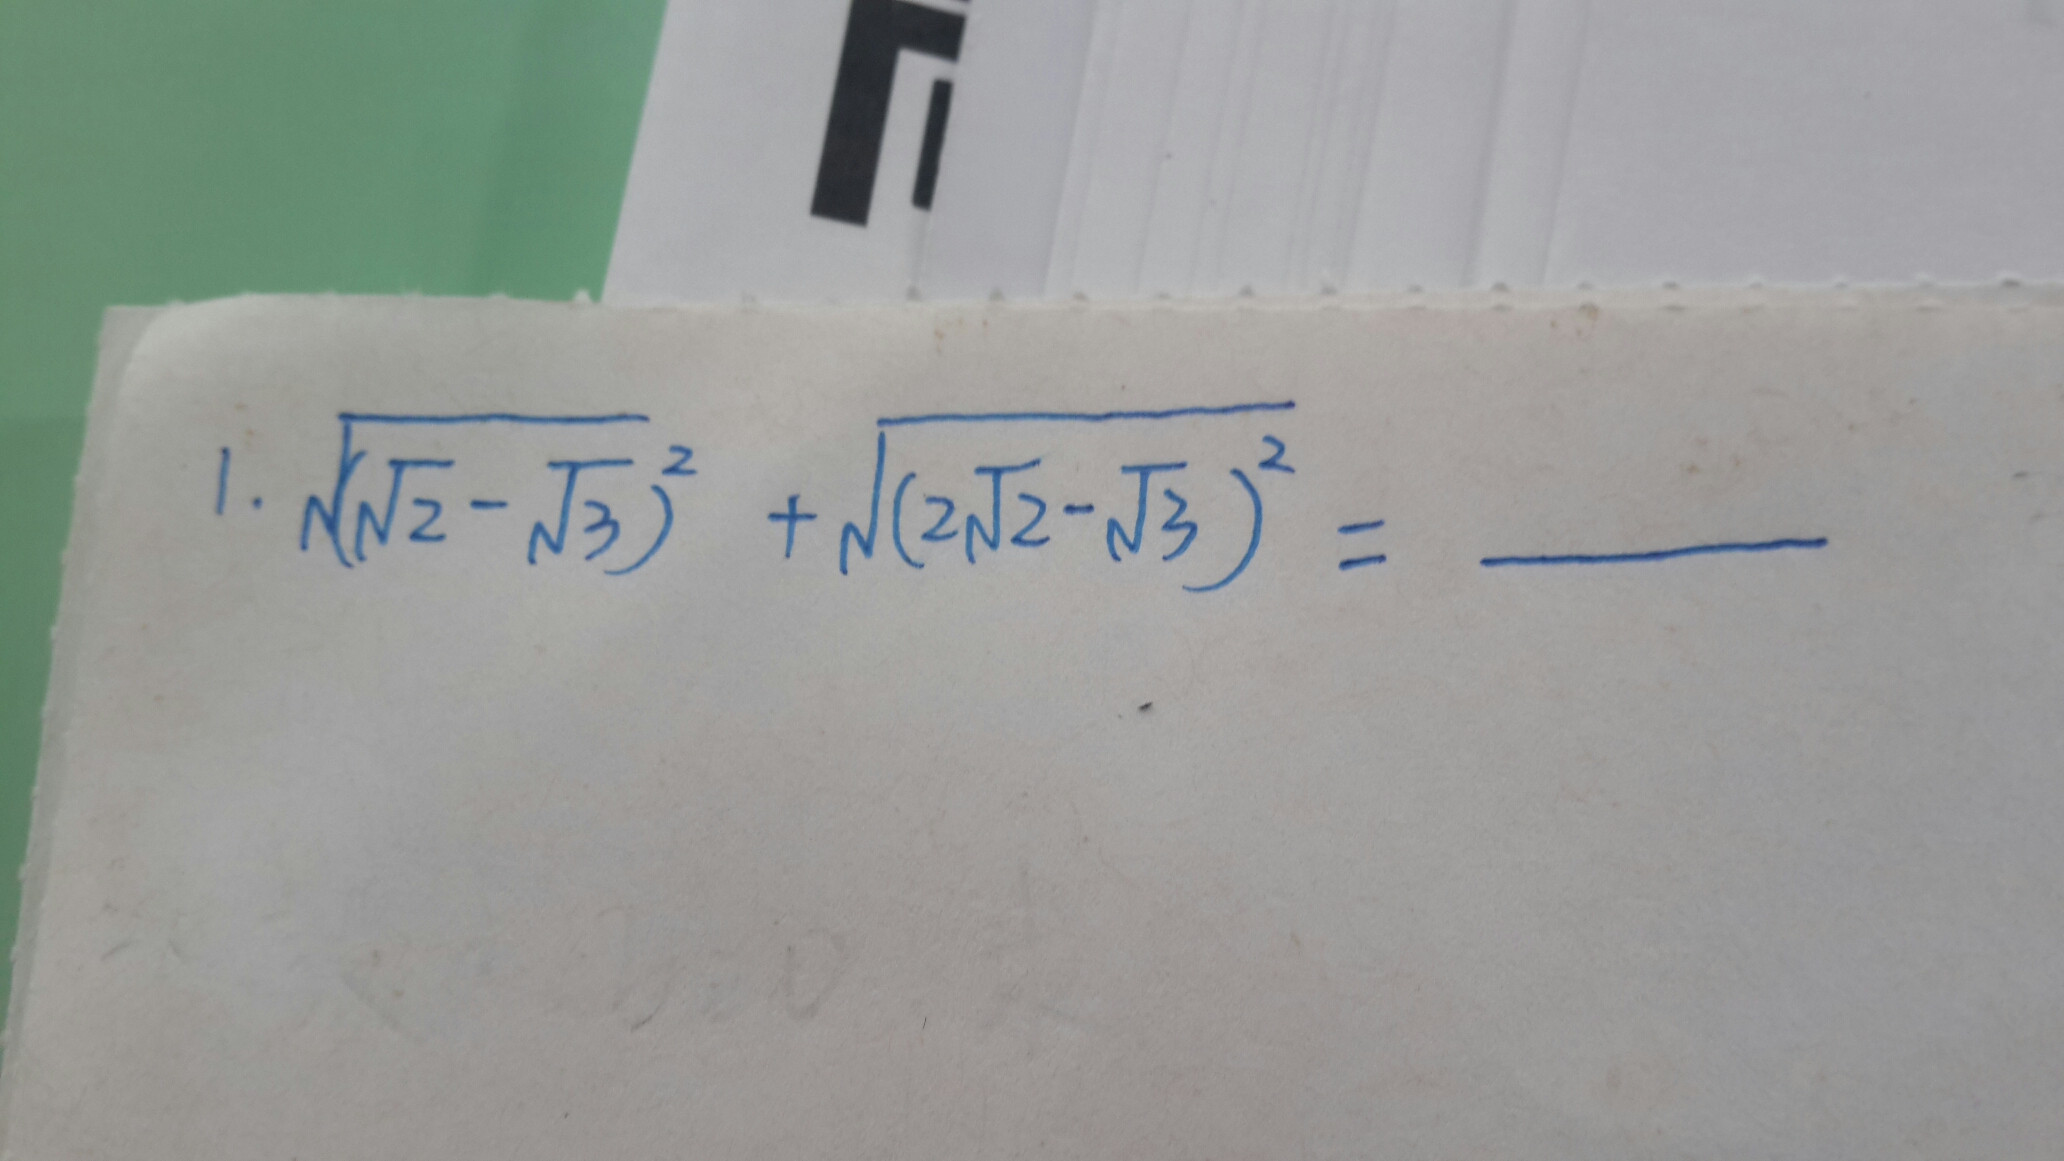 1. √(√2-√3)² + √(2√2-√3)² = ______